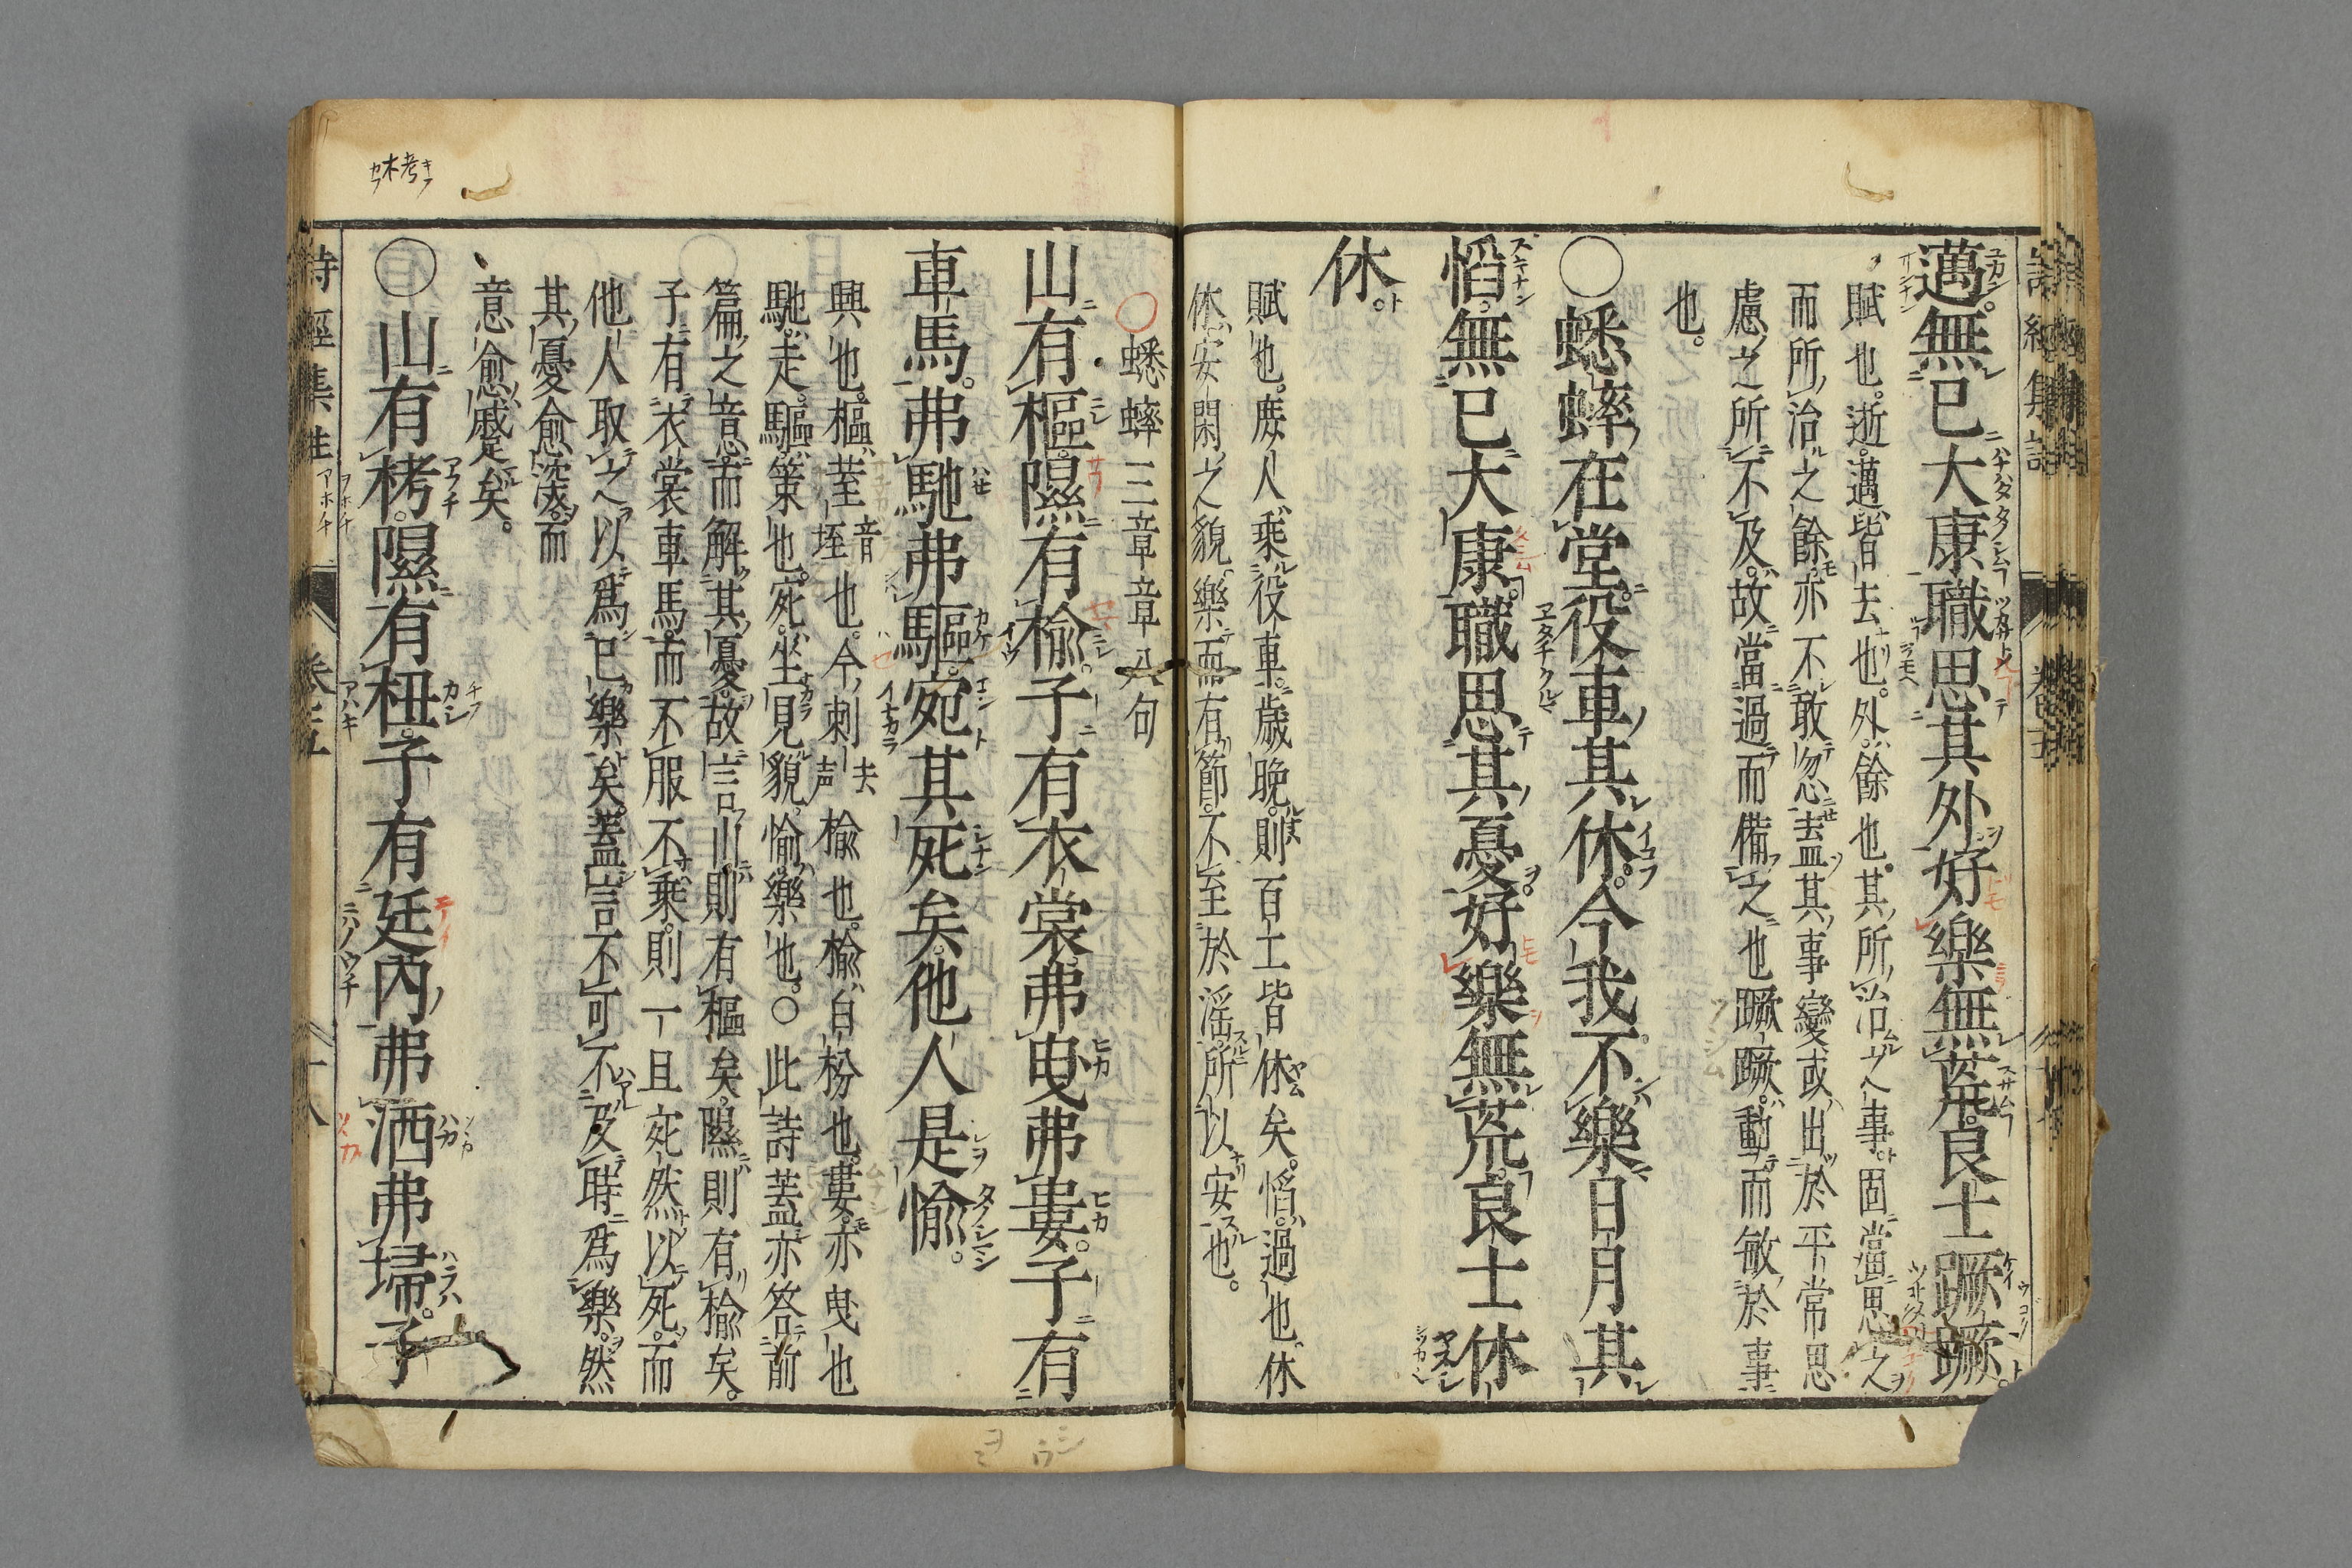 邁。無已大康。職思其外。好樂無荒。良士蹶蹶。
賦也。逝。邁。皆去也。外。餘也。其所治之事。固當思之
而所治之餘。亦不敢忽。盖其事變或出於平常思
慮之所不及。故當過而備之也。蹶蹶。動而敏於事
也。
〇蟋蟀在堂。役車其休。今我不樂。日月其
慆。無已大康。職思其憂。好樂無荒。良士休
休。
賦也。庶人乘役車。歲晚。則百工皆休矣。慆。過也。休
休。安閑之貌。樂而有節。不至於淫。所以安也。
〇蟋蟀三章章八句
山有樞。隰有榆。子有衣裳。弗曳弗婁。子有
車馬。弗馳弗驅。宛其死矣。他人是愉。
興也。樞。荎音垤也。今刺去声榆也。榆。白枌也。婁。亦曳也
馳。走。驅。策也。宛。坐見貌。愉。樂也。〇此詩蓋亦答前
篇之意。而解其憂。故言山則有樞矣。隰則有榆矣。
子有衣裳車馬。而不服不乘。則一旦宛然以死。而
他人取之以爲已樂矣。蓋言不可不及時爲樂。然
其憂愈深。而
意愈蹙矣。
〇山有栲。隰有杻。子有廷內。弗洒弗埽。子
詩經集註
卷三
十八
詩經集註